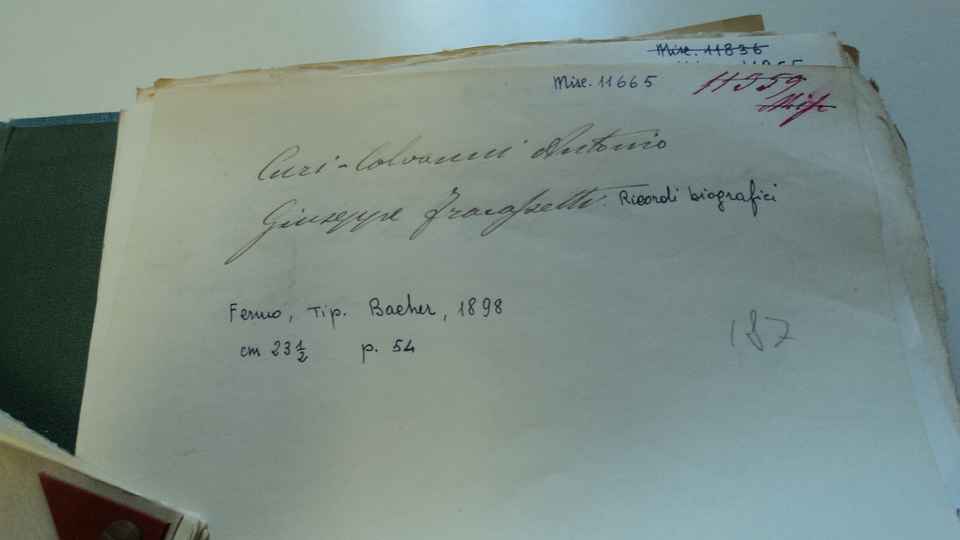 Misc. 11836
Misc. 11665
11559
Misc
Curi-Colvanni Antonio
Giuseppe Fracassetti. Ricordi biografici
Fermo, Tip. Bacher, 1898
cm 23 1/2 p. 54
187